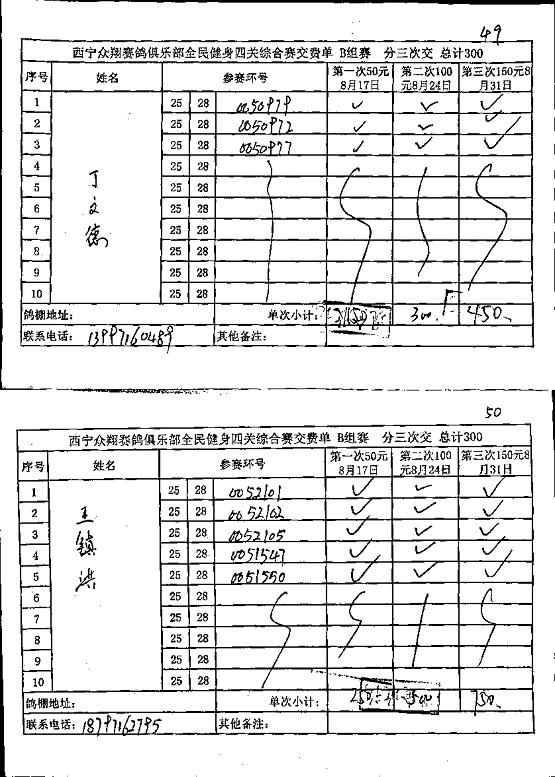 49
西宁众翔赛鸽俱乐部全民健身四关综合赛交费单 B组赛 分三次交 总计300
序号 姓名 参赛环号 第一次50元8月17日 第二次100元8月24日 第三次150元8月31日
丁文德
1 25 28 0050979 ✓ ✓ ✓
2 25 28 0050972 ✓ ✓ ✓
3 25 28 0050977 ✓ ✓ ✓
4 25 28
5 25 28
6 25 28
7 25 28
8 25 28
9 25 28
10 25 28
鸽棚地址: 单次小计: 300. 450.
联系电话: 13997160489 其他备注:
50
西宁众翔赛鸽俱乐部全民健身四关综合赛交费单 B组赛 分三次交 总计300
序号 姓名 参赛环号 第一次50元8月17日 第二次100元8月24日 第三次150元8月31日
王镇洪
1 25 28 0052101 ✓ ✓ ✓
2 25 28 0052102 ✓ ✓ ✓
3 25 28 0052105 ✓ ✓ ✓
4 25 28 0051547 ✓ ✓ ✓
5 25 28 0051550 ✓ ✓ ✓
6 25 28
7 25 28
8 25 28
9 25 28
10 25 28
鸽棚地址: 单次小计: 250 500 750.
联系电话: 18797162795 其他备注: